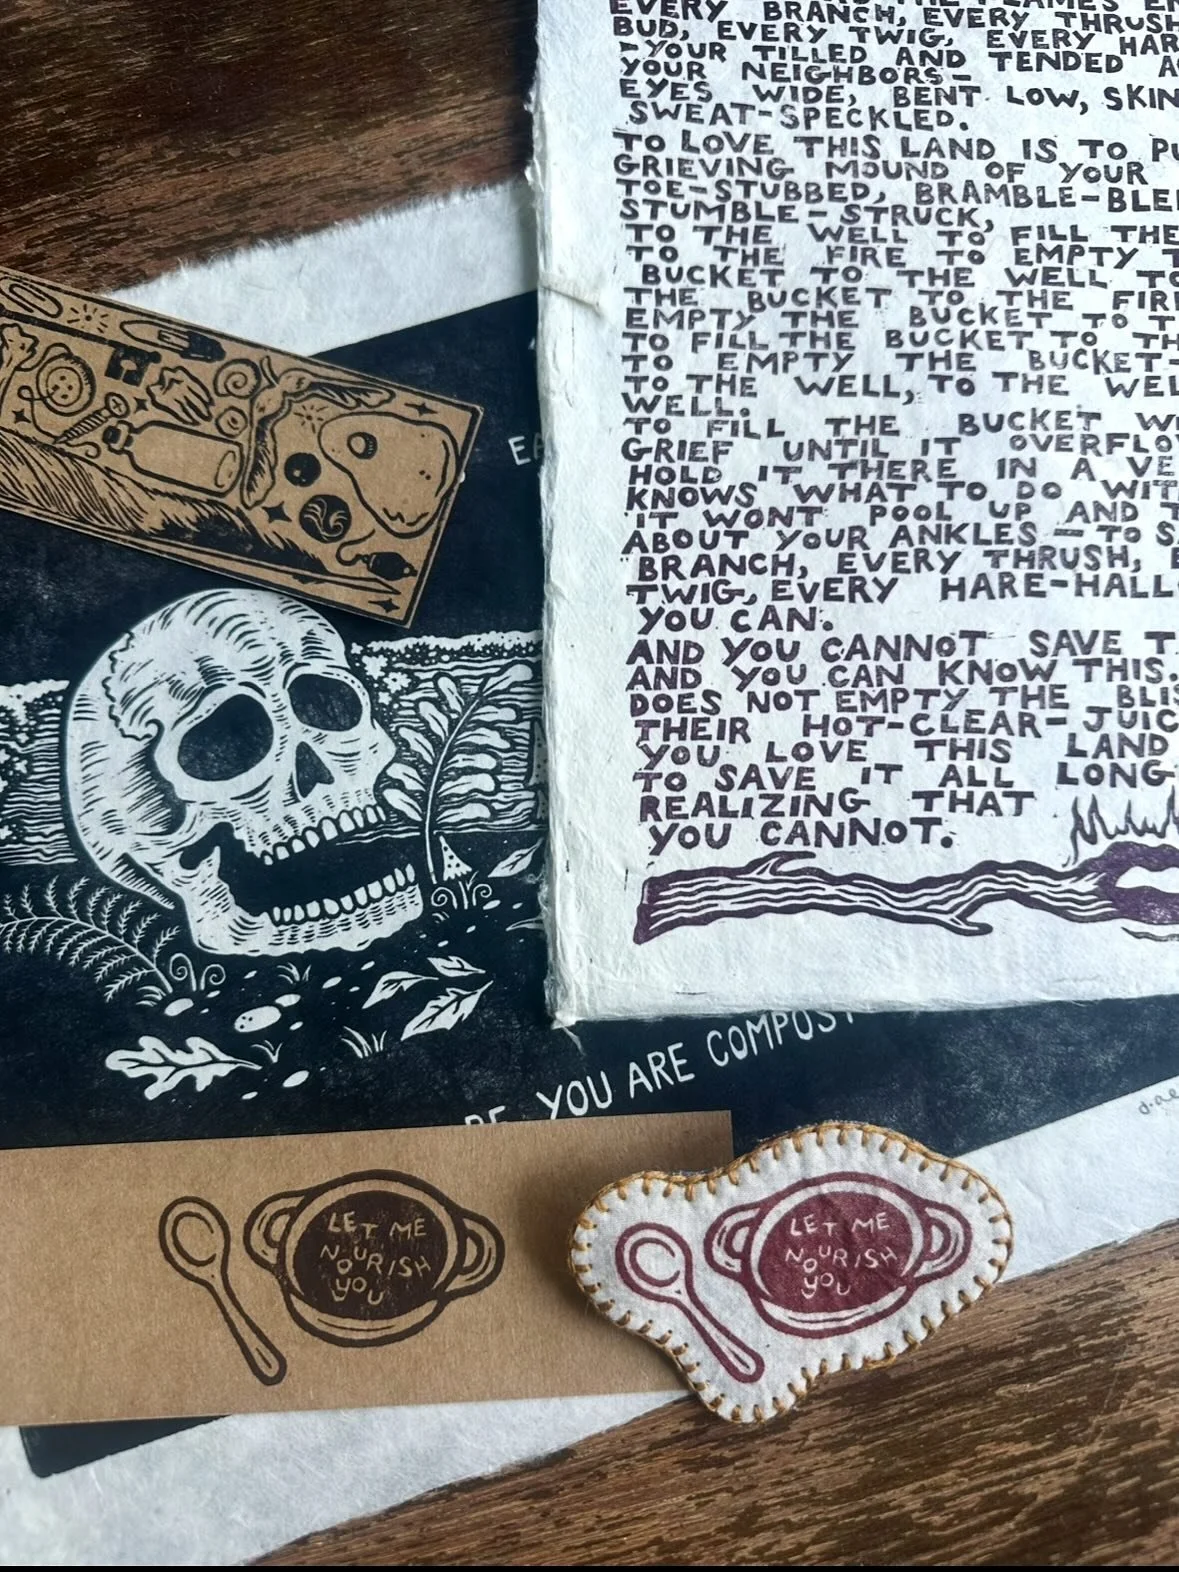 EVERY BRANCH, EVERY THRUSH
BUD, EVERY TWIG, EVERY HAR
-YOUR TILLED AND TENDED
YOUR NEIGHBORS-
EYES WIDE, BENT LOW, SKIN
SWEAT-SPECKLED.
TO LOVE THIS LAND IS TO PU
GRIEVING MOUND OF YOUR
TOE-STUBBED, BRAMBLE-BLE
STUMBLE-STRUCK,
TO THE WELL TO FILL THE
TO THE FIRE TO EMPTY T
BUCKET TO THE WELL TO
THE BUCKET TO THE FIR
EMPTY THE BUCKET TO T
TO FILL THE BUCKET TO TH
TO EMPTY THE BUCKET-
TO THE WELL, TO THE WEL
WELL.
TO FILL THE BUCKET W
GRIEF UNTIL IT OVERFLO
HOLD IT THERE IN A VE
KNOWS WHAT TO DO WIT
IT WONT POOL UP AND T
ABOUT YOUR ANKLES - TO SA
BRANCH, EVERY THRUSH, E
TWIG, EVERY HARE-HALL
YOU CAN.
AND YOU CANNOT SAVE T
AND YOU CAN KNOW THIS.
DOES NOT EMPTY THE BLIS
THEIR HOT-CLEAR-JUIC
YOU LOVE THIS LAND
TO SAVE IT ALL LONG
REALIZING THAT
YOU CANNOT.
YOU ARE COMPOST
LET ME
NOURISH
YOU
LET ME
NOURISH
YOU